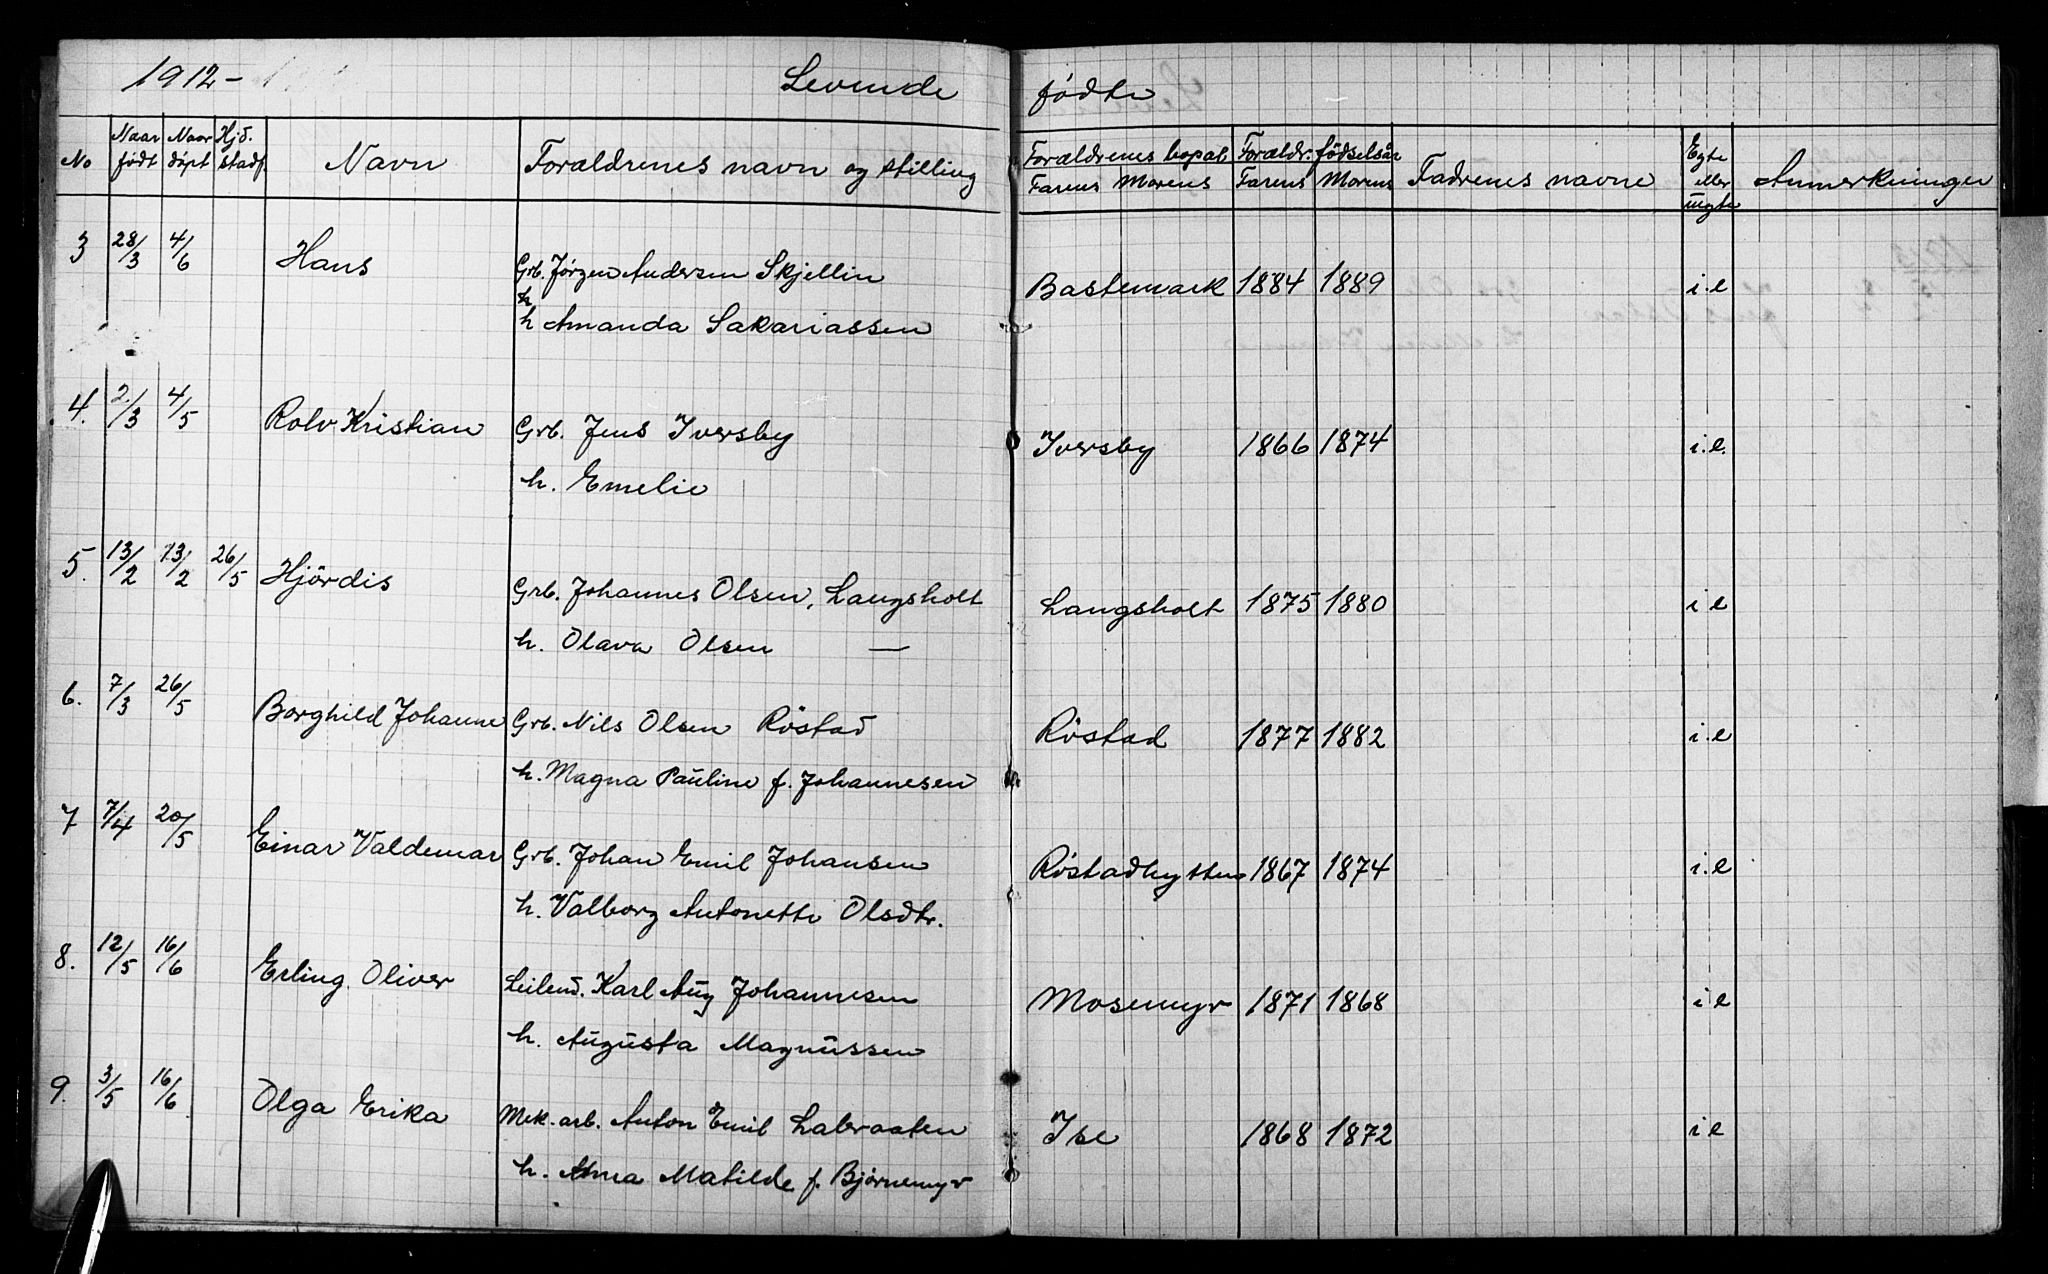 1912 – Levende fødte
No Naar født Naar döpt Hjd. stadf. Navn Foraldrenes navn og stilling Foraldrenes bopal Farens Morens Foraldr. födselsår Farens Morens Fadrenes navne Egte eller uegte Anmerkninger
3 28/3 4/6 Hans Grb. Jørgen Andersen Skjellin Bastemark 1884 1889 i.e
h
h Amanda Sakariassen
4. 2/3 4/5 Rolv Kristian Grb. Jens Iversby Iversby 1866 1874 i.e.
h. Emelie
5. 13/2 13/2 26/5 Hjördis Grb. Johannes Olsen, Langsholt Langsholt 1875 1880 i e
h. Olava Olsen —
6. 7/3 26/5 Borghild Johanne Grb. Nils Olsen Röstad Röstad 1877 1882 i.e
h. Magna Pauline f. Johannesen
7 7/4 20/5 Einar Valdemar Grb. Johan Emil Johansen Röstadhytten 1867 1874 i.e
h. Valborg Antonette Olsdtr.
8. 12/5 16/6 Erling Oliver Leilend. Karl Aug Johannesen Mosemyr 1871 1868 i e
h. Augusta Magnussen
9. 3/5 16/6 Olga Erika Mek. arb. Anton Emil Labraaten Ise 1868 1872 i e
h. Anna Matilde f. Bjørnemyr